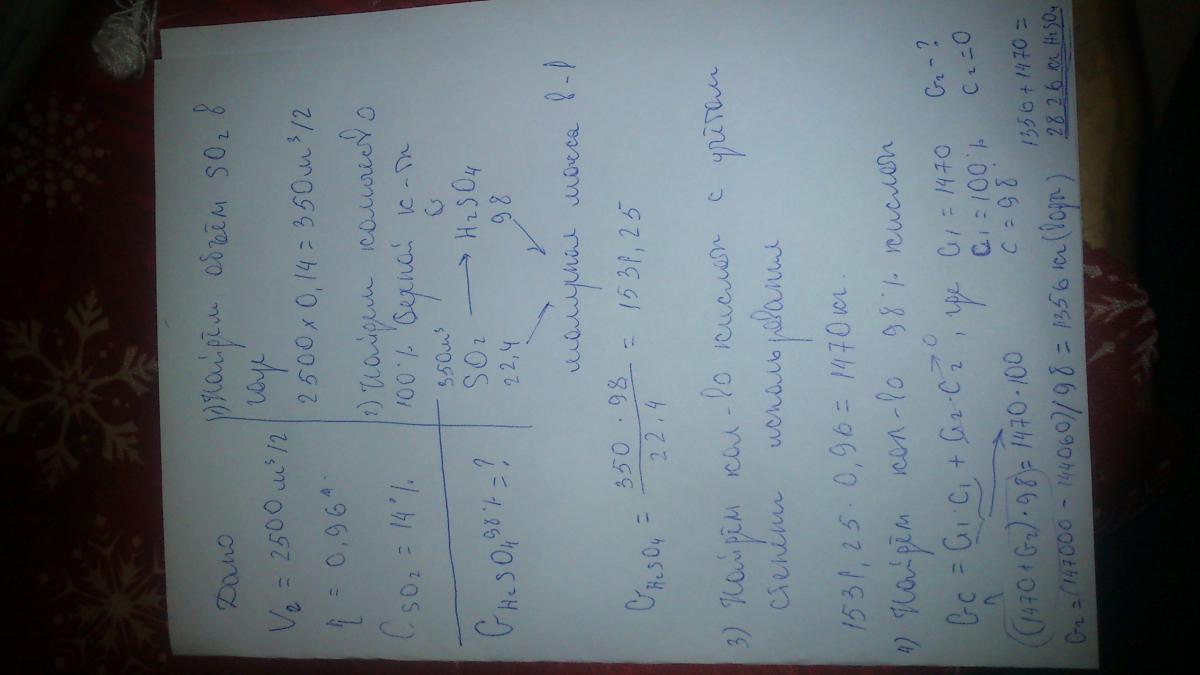 Дано
V₂ = 2500 м³/2
η = 0,96
C SO₂ = 14%
G H₂SO₄ 98% = ?
1) Найдём объём SO₂ в
газе
2500 x 0,14 = 350 м³/2
2) Найдем количество
100% Серной к-ты
350м³ G
SO₂ ⟶ H₂SO₄
22,4 98
молярная масса в-в
G H₂SO₄ = 350 · 98 / 22,4 = 1531,25
3) Найдём кол-во кислот с учётом
степени использования
1531,25 · 0,96 = 1470 кг.
4) Найдём кол-во 98% кислот
Gc = G₁·C₁ + G₂·C₂→0, где G₁ = 1470 G₂ - ?
C₁ = 100% C₂ = 0
C = 98
(1470 + G₂) · 98 = 1470 · 100
G₂ = (147000 - 144060) / 98 = 1356 кг 1356 + 1470 =
2826 кг H₂SO₄